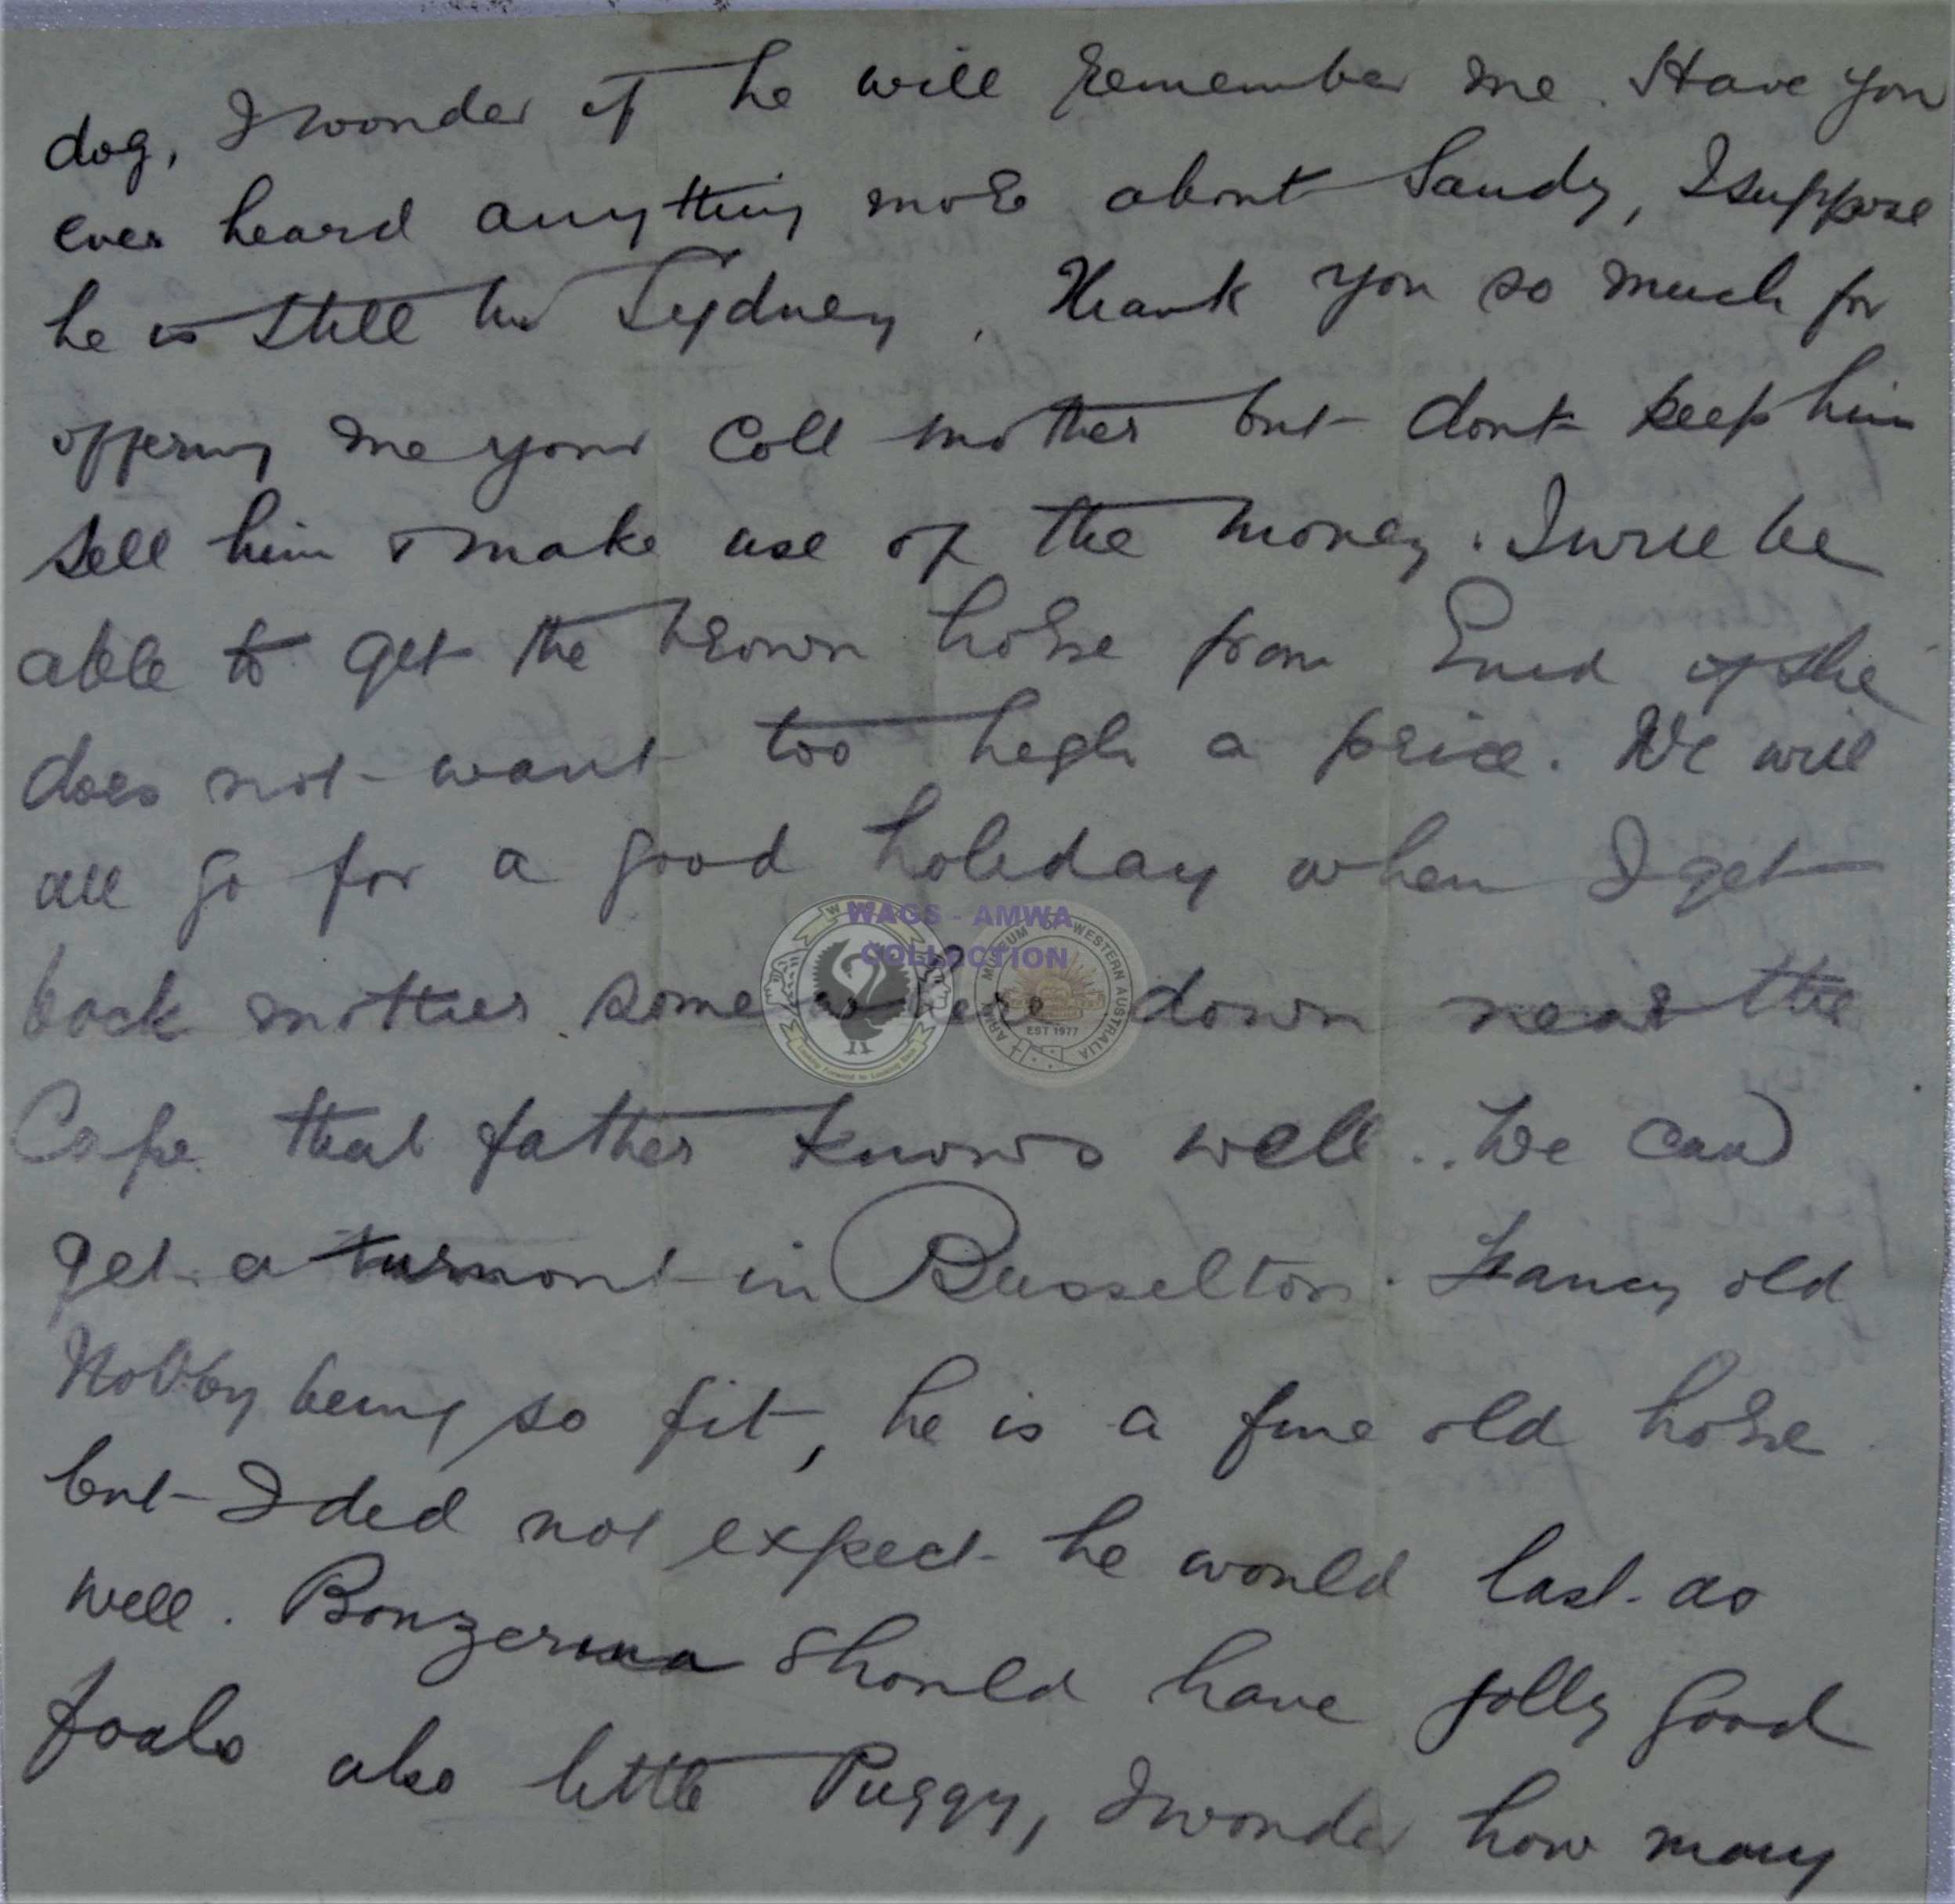 dog, I wonder if he will remember me. Have you
ever heard anything more about Sandy, I suppose
he is still in Sydney. Thank you so much for
offering me your colt mother but dont keep him
sell him & make use of the money. I will be
able to get the brown horse from Enid if she
does not want too high a price. We will
all go for a good holiday when I get
WAGS - AMWA
COLLECTION
back mother somewhere down near the
ARMY MUSEUM OF WESTERN AUSTRALIA
EST 1977
Looking Forward to Looking Back
Cape that father knows well.. We can
get a turnout in Busselton. Fancy old
Nobby being so fit, he is a fine old horse
but I did not expect he would last as
well. Bonzerina should have jolly good
foals also little Puggy, I wonder how many